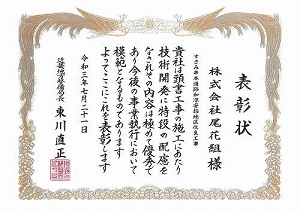 表彰状
株式会社尾花組様
貴社は頭書工事の施工にあたり
技術開発に特段の配慮を
なされその内容は極めて優秀で
あり今後の事業執行において
模範となるものであります
よってここにこれを表彰します
令和三年七月二十一日
近畿地方整備局長 東川直正